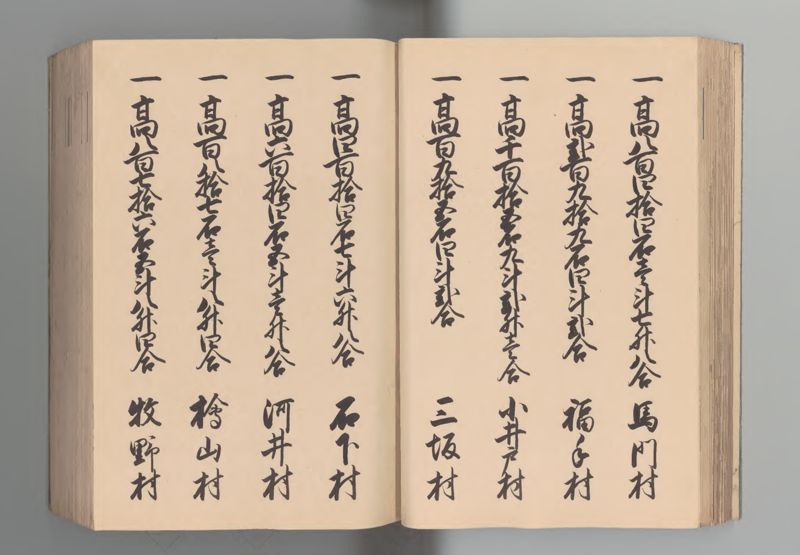 一高八百四拾四石壱斗七升八合 馬門村
一高弐百九拾九石四斗弐合 福手村
一高千百拾五石九斗弐升壱合 小井戸村
一高百九拾五石四斗弐合 三坂村
一高四百拾四石七斗六升八合 石下村
一高六百拾四石五斗壱升八合 河井村
一高百八拾七石壱斗八升四合 檜山村
一高八百七拾六石五斗八升四合 牧野村